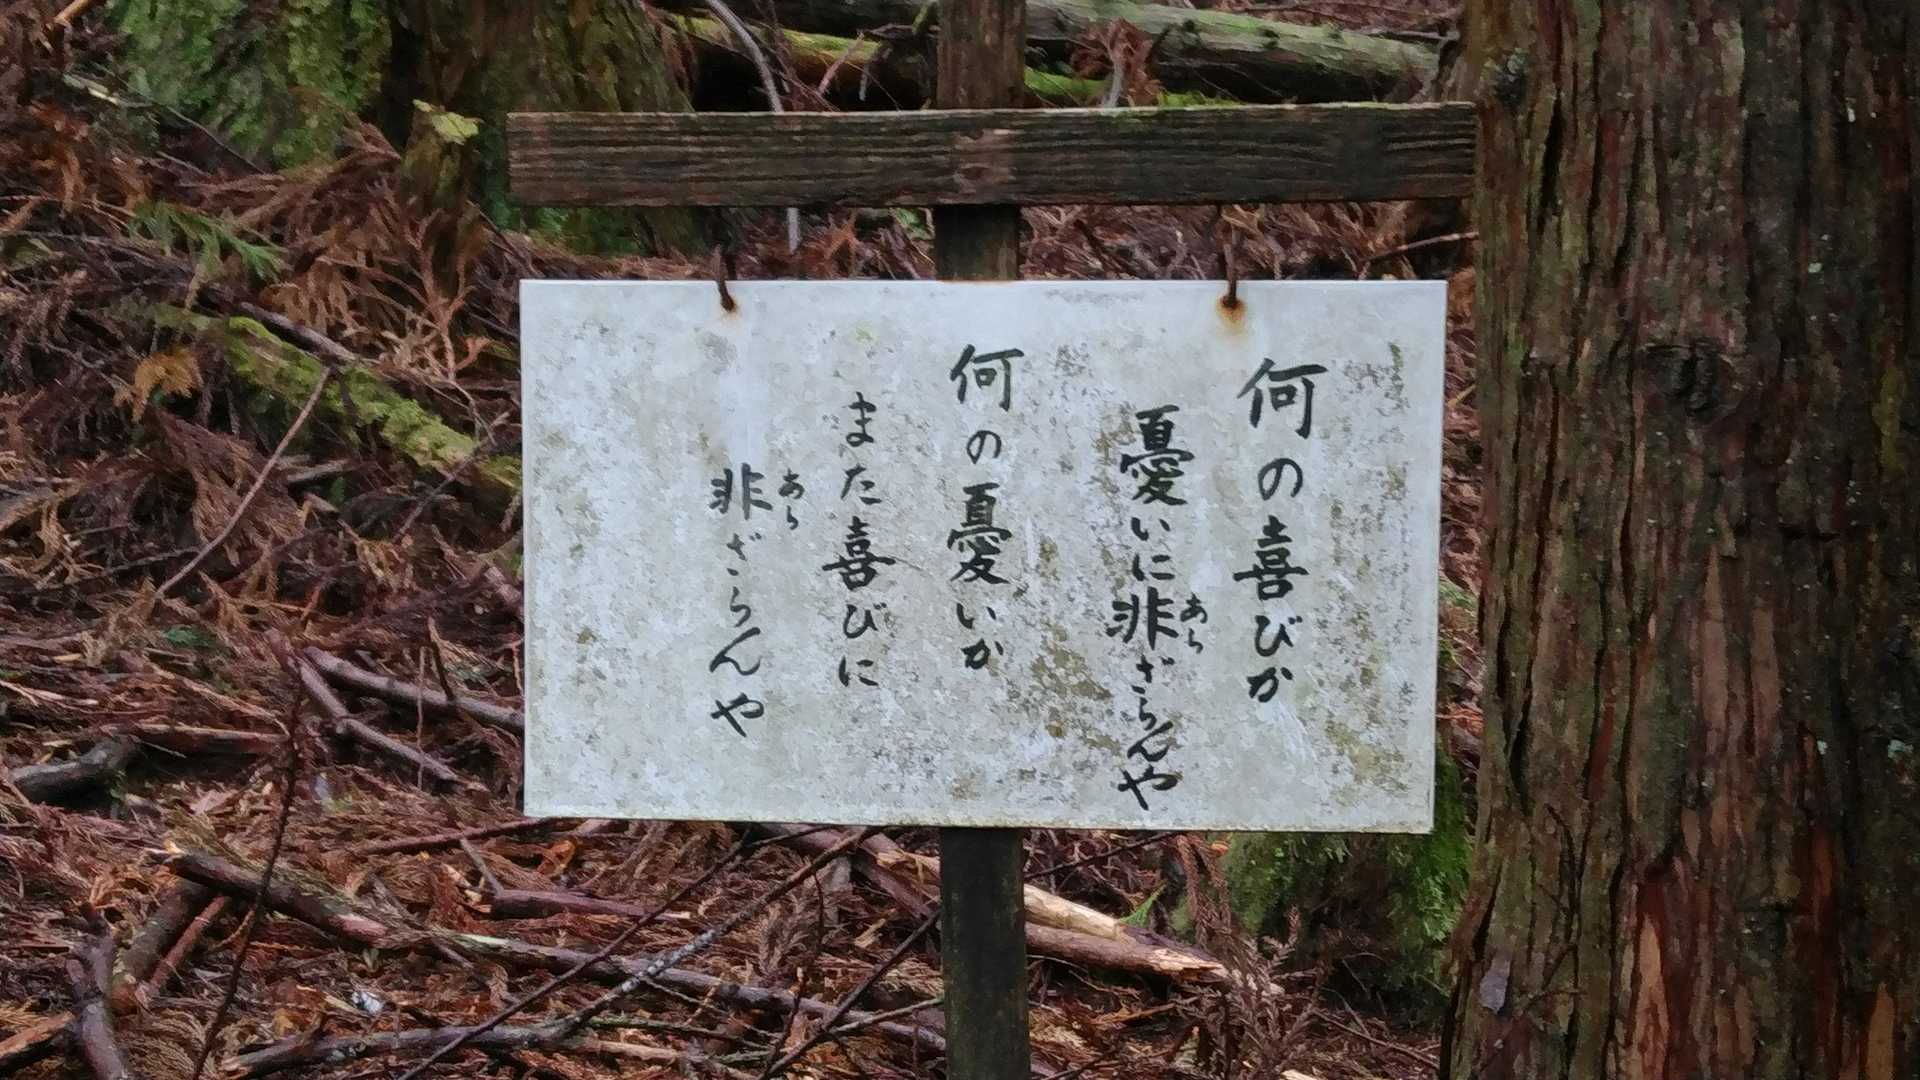 何の喜びか
憂いに非ざらんや
あら
何の憂いか
また喜びに
非ざらんや
あら